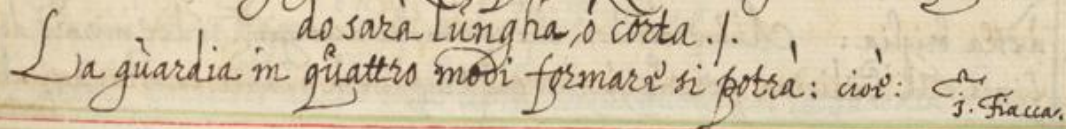 do sarà lùngha, ò corta ./.
La gùardia in qùattro modi formare si potrà: cioè:
j. Fiacca.